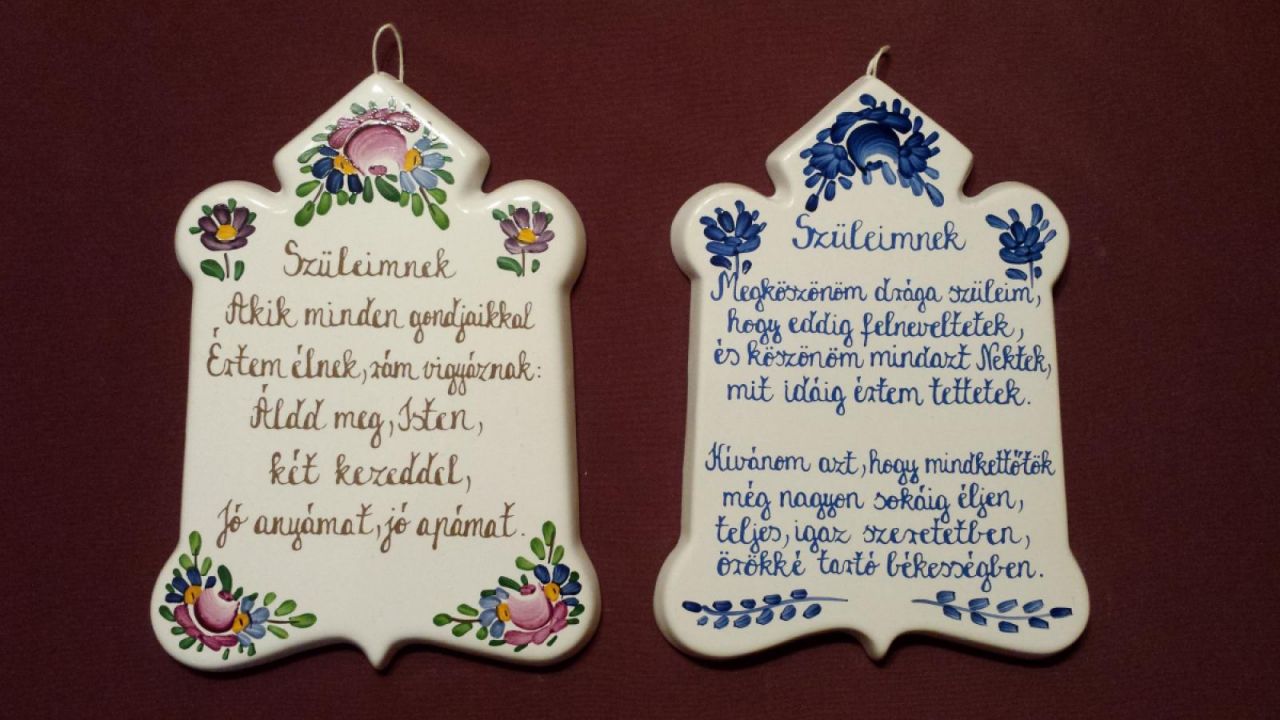 Szüleimnek
Akik minden gondjaikkal
Értem élnek, rám vigyáznak:
Áldd meg, Isten,
két kezeddel,
Jó anyámat, jó apámat.
Szüleimnek
Megköszönöm drága szüleim,
hogy eddig felneveltetek,
és köszönöm mindazt Nektek,
mit idáig értem tettetek.
Kívánom azt, hogy mindkettőtök
még nagyon sokáig éljen,
teljes, igaz szeretetben,
örökké tartó békességben.